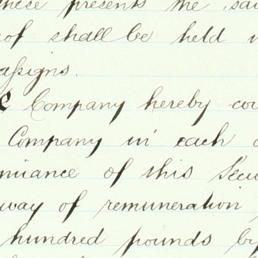 these presents the sai
of shall be held
assigns.
Company hereby cov
Company in each
nuance of this Secu
way of remuneration
hundred pounds by